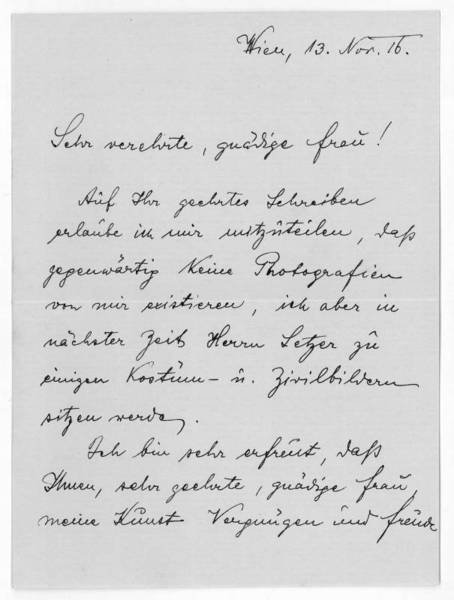 Wien, 13. Nov. 16.
Sehr verehrte, gnädige Frau!
Auf Ihr geehrtes Schreiben
erlaube ich mir mitzuteilen, daß
gegenwärtig keine Photografien
von mir existieren, ich aber in
nächster Zeit Herrn Setzer zu
einigen Kostüm- u. Zivilbildern
sitzen werde.
Ich bin sehr erfreut, daß
Ihnen, sehr geehrte, gnädige Frau,
meine Kunst Vergnügen und Freude